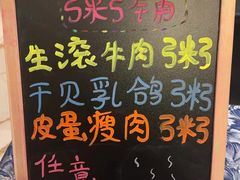 生滚牛肉粥
干贝乳鸽粥
皮蛋瘦肉粥
任意